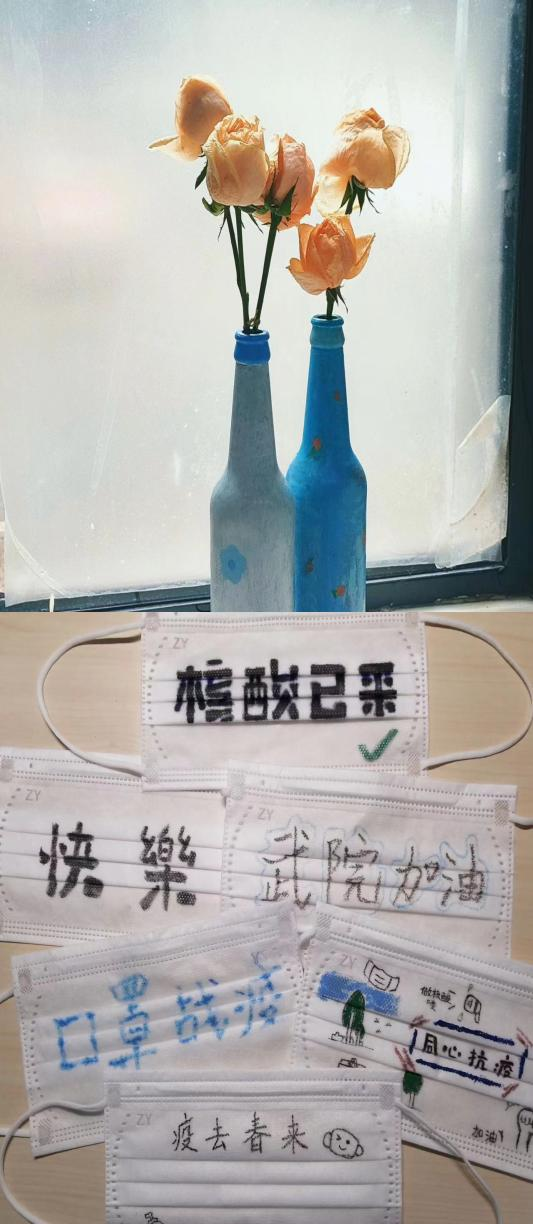 ZY
核酸已采
ZY
快樂
ZY
武院加油
口罩战疫
ZY
做核酸
喽
同心抗疫
加油
ZY
疫去春来